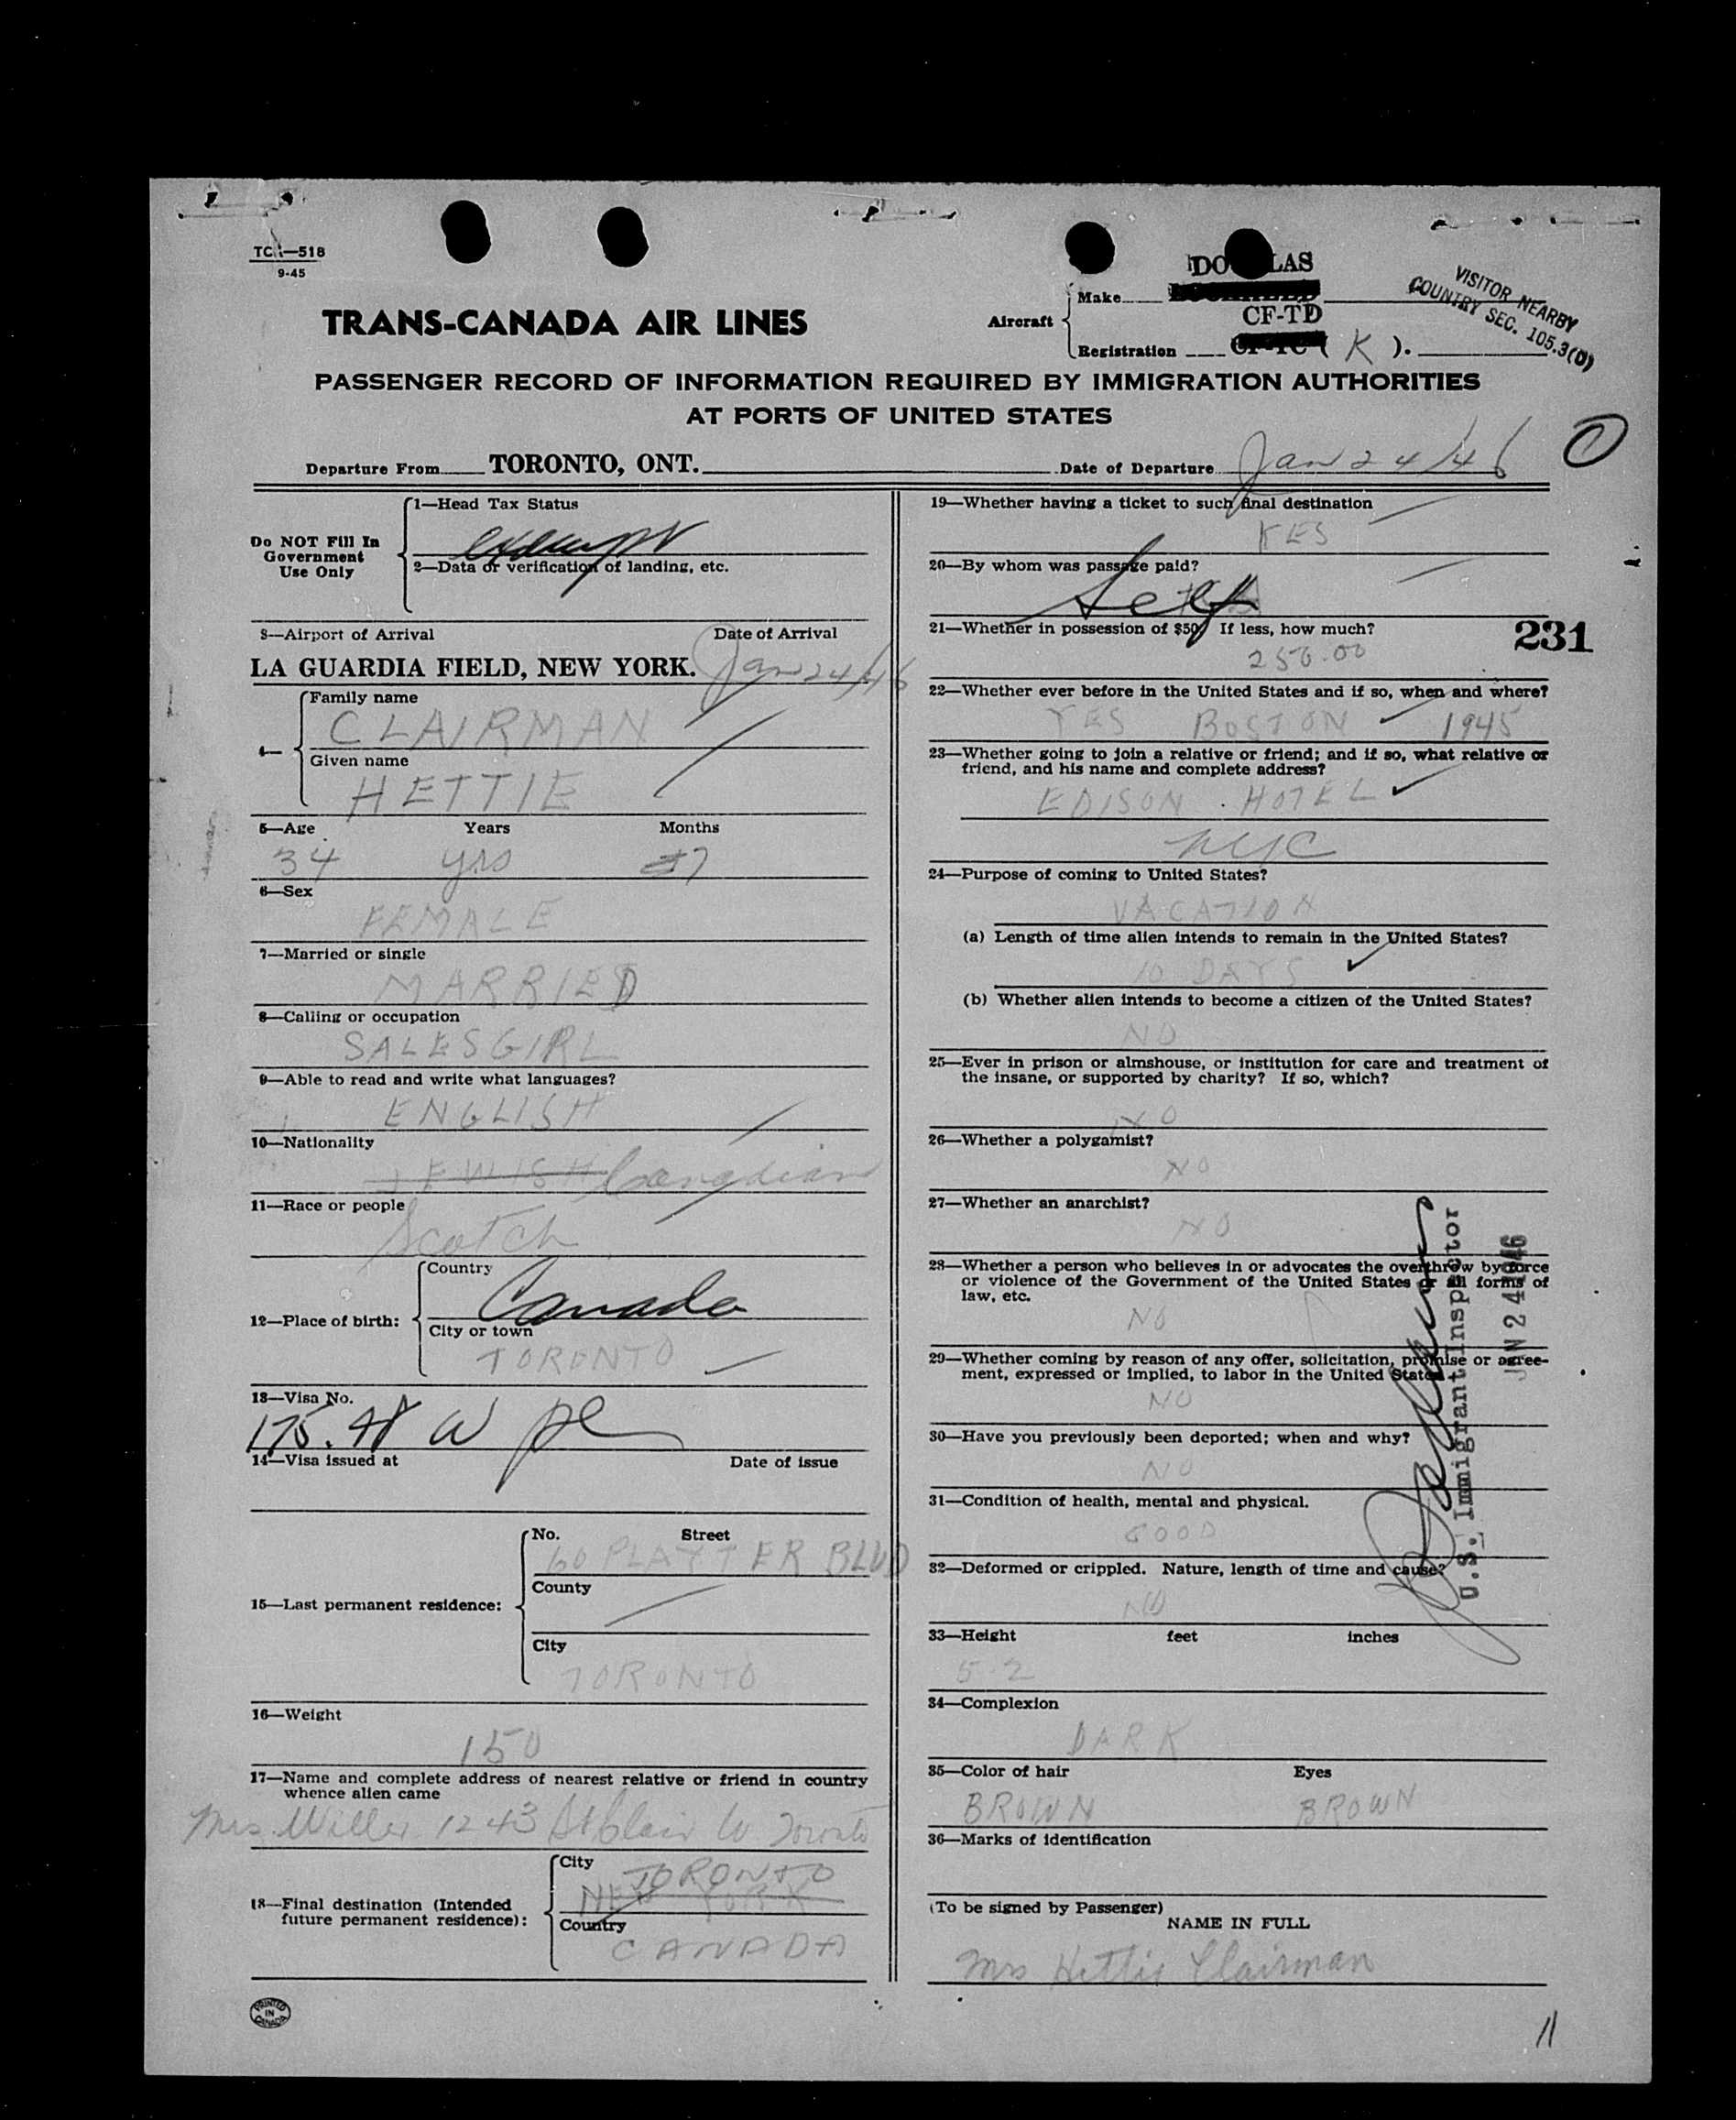 TCA—518
9-45
TRANS-CANADA AIR LINES
DOUGLAS
Aircraft
Make
CF-TD
Registration CF-TC ( K ).
VISITOR NEARBY
COUNTRY SEC. 105.3(D)
PASSENGER RECORD OF INFORMATION REQUIRED BY IMMIGRATION AUTHORITIES
AT PORTS OF UNITED STATES
Departure From TORONTO, ONT. Date of Departure Jan 24/46
1
Do NOT Fill In
Government
Use Only
1—Head Tax Status
exempt
2—Data or verification of landing, etc.
3—Airport of Arrival Date of Arrival
LA GUARDIA FIELD, NEW YORK. Jan 24/46
4—
Family name
CLAIRMAN
Given name
HETTIE
5—Age Years Months
34 yrs 7
6—Sex
FEMALE
7—Married or single
MARRIED
8—Calling or occupation
SALESGIRL
9—Able to read and write what languages?
ENGLISH
10—Nationality
JEWISH Canadian
11—Race or people
Scotch
12—Place of birth:
Country
Canada
City or town
TORONTO
13—Visa No.
175.
14—Visa issued at Date of issue
15—Last permanent residence:
No. Street
60 PLATTER BLVD
County
City
TORONTO
16—Weight
150
17—Name and complete address of nearest relative or friend in country
whence alien came
Mrs. Willer 1243 St Clair W Toronto
18—Final destination (Intended
future permanent residence):
City
TORONTO
NEW YORK
Country
CANADA
PRINTED
IN
CANADA
19—Whether having a ticket to such final destination
YES
20—By whom was passage paid?
Self
21—Whether in possession of $50. If less, how much?
250.00
231
22—Whether ever before in the United States and if so, when and where?
YES BOSTON 1945
23—Whether going to join a relative or friend; and if so, what relative or
friend, and his name and complete address?
EDISON HOTEL
NYC
24—Purpose of coming to United States?
VACATION
(a) Length of time alien intends to remain in the United States?
10 DAYS
(b) Whether alien intends to become a citizen of the United States?
NO
25—Ever in prison or almshouse, or institution for care and treatment of
the insane, or supported by charity? If so, which?
NO
26—Whether a polygamist?
NO
27—Whether an anarchist?
NO
28—Whether a person who believes in or advocates the overthrow by force
or violence of the Government of the United States or all forms of
law, etc.
NO
29—Whether coming by reason of any offer, solicitation, promise or agree-
ment, expressed or implied, to labor in the United States
NO
30—Have you previously been deported; when and why?
NO
31—Condition of health, mental and physical.
GOOD
32—Deformed or crippled. Nature, length of time and cause?
NO
33—Height feet inches
5-2
34—Complexion
DARK
35—Color of hair Eyes
BROWN BROWN
36—Marks of identification
U.S. Immigrant Inspector
JAN 24 1946
(To be signed by Passenger)
NAME IN FULL
Mrs Hettie Clairman
11